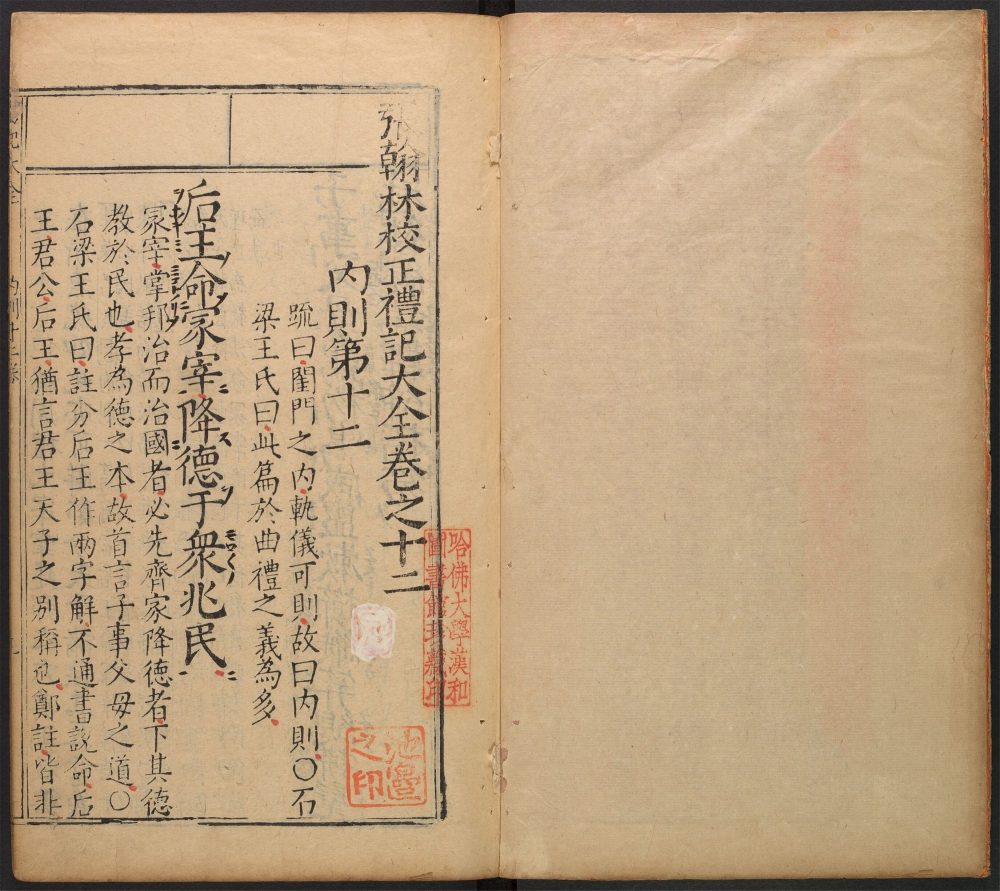 張翰林校正禮記大全卷之十二
内則第十二
䟽曰閨門之内軌儀可則故曰内則〇石
梁王氏曰此篇於曲禮之義為多
后王命冡宰降德于衆兆民
冡宰掌邦治而治國者必先齊家降德者下其德
教於民也孝為德之本故首言子事父母之道〇
石梁王氏曰註分后王作兩字解不通書說命后
王君公后王猶言君王天子之别稱也鄭註皆非
哈佛大學漢和
圖書館珍藏印
之印